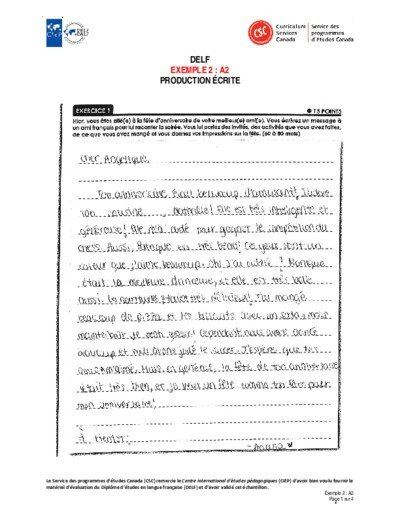 CIEP
DELF
CSC
Curriculum Services Canada
Service des programmes d'études Canada
DELF
EXEMPLE 2 : A2
PRODUCTION ÉCRITE
EXERCICE 1
15 POINTS
Hier, vous êtes allé(e) à la fête d'anniversaire de votre meilleur(e) ami(e). Vous écrivez un message à
un ami français pour lui raconter la soirée. Vous lui parlez des invités, des activités que vous avez faites,
de ce que vous avez mangé et vous donnez vos impressions sur la fête. (60 à 80 mots)
Cher Angelique,
Ton anniversaire était beaucoup d'amusant! J'adore
ton cousine Nathalie! Elle est très intelligente et
généreuse! Elle m'a aidé pour gagner le compétition du
chess. Aussi, est très beau! Ces yeux sont un
couleur que j'aime beaucoup. Oh! J'ai oublié! Monique
était la meilleure danseuse, et elle est très belle
aussi. Les nourritures étaient très délicieux! J'ai mangé
beaucoup de pizza et les biscuits avec un soda,
maintenant je Cependant nous avons dansé
beaucoup et nous avons joué le J'espère que tes
Mais, en général, la fête de ton anniversaire
était très bien, et je veux un fête comme ton fête pour
mon anniversaire!
À
- Ariana
Le Service des programmes d'études Canada (CSC) remercie le Centre international d'études pédagogiques (CIEP) d'avoir bien voulu fournir le
matériel d'évaluation du Diplôme d'études en langue française (DELF) et d'avoir validé cet échantillon.
Exemple 2 : A2
Page 1 sur 4